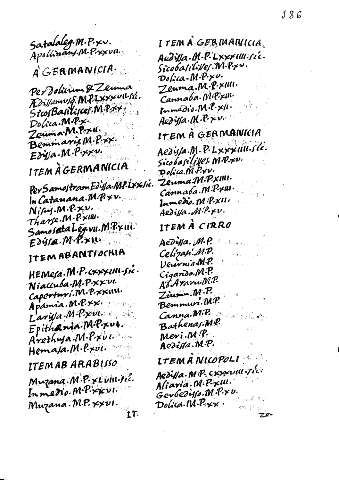 186
Satalaleg. M.P. XV.
Apollinaris M.P. XXVII.
A GERMANICIA.
Per Dolicum & Zeuma
Adissamusq M.P. LXXXVII. sic.
Sicos Basilisses M.P. XX.
Dolica. M.P. X.
Zeuma. M.P. XII.
Bemmaris M.P. XX.
Edissa. M.P. XXV.
ITEM A GERMANICIA
Per Samostram Edissa. M.P. LXX. sic.
In Catanana. M.P. XV.
Nisus. M.P. XV.
Tharse. M.P. XIIII.
Samosata Leg. VII. M.P. XIII.
Edissa. M.P. XII.
ITEM AB ANTIOCHIA
Hemesa. M.P. CXXXIII. sic.
Niaccuba. M.P. XXVI.
Caperturi. M.P. XXIIII.
Apamia. M.P. XX.
Larissa. M.P. XVI.
Epithania. M.P. XVI.
Arethusa. M.P. XVI.
Hemasa. M.P. XVI.
ITEM AB ARABISSO
Muzana. M.P. XLVIII. sic.
In medio. M.P. XXVI.
Muzana. M.P. XXVI.
IT.
ITEM A GERMANICIA
Aedissa. M.P. LXXXIIII. sic.
Sicobasilisses M.P. XV.
Dolica. M.P. XV.
Zeuma. M.P. XIIII.
Cannaba. M.P. XIII.
In medio. M.P. XII.
Aedissa. M.P. XV.
ITEM A GERMANICIA
Aedissa. M.P. LXXXIIII. sic.
Sicobasilisses M.P. XV.
Dolica. M.P. XV.
Zeuma. M.P. XIIII.
Cannaba. M.P. XIII.
In medio. M.P. XII.
Aedissa. M.P. XV.
ITEM A CIRRO
Aedissa. M.P.
Celipasi. M.P.
Veurnia M.P.
Cigarida M.P.
Ad Aram M.P.
Zeuma. M.P.
Bemmuri. M.P.
Canna. M.P.
Bathenas. M.P.
Meri. M.P.
Aedissa. M.P.
ITEM A NICOPOLI
Aedissa. M.P. CXXXVIII. sic.
Aliaria. M.P. XIII.
Gerbedisso. M.P. XV.
Dolica. M.P. XX.